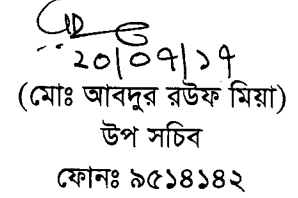 ২০/০৭/১৭
(মোঃ আবদুর রউফ মিয়া)
উপ সচিব
ফোনঃ ৯৫১৪১৪২